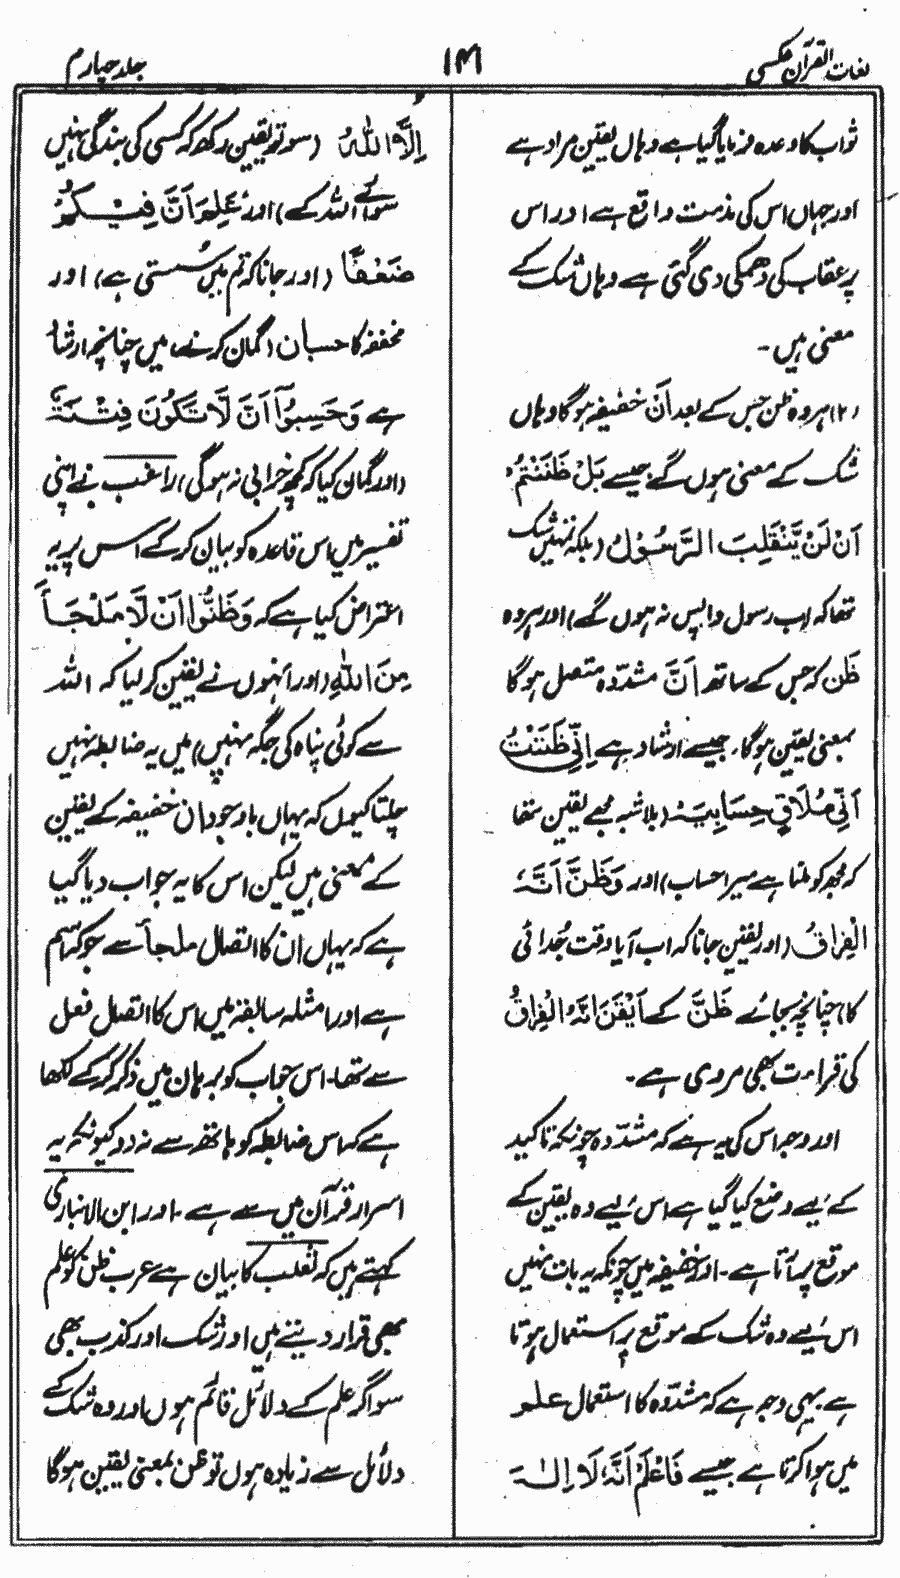 لغات القرآن عکسی
۱۳۱
جلد چہارم
ثواب کا وعدہ فرمایا گیا ہے وہاں یقین مراد ہے
اور جہاں اس کی مذمت واقع ہے اور اس
پر عقاب کی دھمکی دی گئی ہے وہاں شک کے
معنی ہیں۔
(۲) ہر وہ ظن جس کے بعد اَنْ خفیفہ ہوگا وہاں
شک کے معنی ہوں گے جیسے بَلْ ظَنَنْتُمْ
اَنْ لَنْ یَّنْقَلِبَ الرَّسُوْلُ (بلکہ تمہیں شک
تھا کہ اب رسول واپس نہ ہوں گے) اور ہر وہ
ظن کہ جس کے ساتھ اَنَّ مشدّدہ متصل ہوگا
بمعنی یقین ہوگا۔ جیسے ارشاد ہے اِنِّیْ ظَنَنْتُ
اَنِّیْ مُلَاقٍ حِسَابِیَہْ (بلا شبہ مجھے یقین تھا
کہ مجھ کو ملنا ہے میرا حساب) اور وَظَنَّ اَنَّہُ
الْفِرَاقُ (اور یقین جانا کہ اب آیا وقت جُدائی
کا) چنانچہ بجائے ظَنَّ کے اَیْقَنَ اَنَّہُ الْفِرَاقُ
کی قراءت بھی مروی ہے۔
اور وجہ اس کی یہ ہے کہ مشدّدہ چونکہ تاکید
کے لیے وضع کیا گیا ہے اس لیے وہ یقین کے
موقع پر آتا ہے۔ اور خفیفہ میں چونکہ یہ بات نہیں
اس لیے وہ شک کے موقع پر استعمال ہوتا
ہے یہی وجہ ہے کہ مشدّدہ کا استعمال علم
میں ہوا کرتا ہے جیسے فَاعْلَمْ اَنَّہُ لَا اِلٰہَ
اِلَّا اللّٰہُ (سو تو یقین رکھ کہ کسی کی بندگی نہیں
سوائے اللہ کے) اور عَلِمَ اَنَّ فِیْکُمْ
ضَعْفًا (اور جانا کہ تم میں سُستی ہے) اور
مخففہ کا حسبان (گمان کرنے) میں چنانچہ ارشاد
ہے وَحَسِبُوْۤا اَنْ لَّا تَکُوْنَ فِتْنَۃٌ
(اور گمان کیا کہ کچھ خرابی نہ ہوگی) راغب نے اپنی
تفسیر میں اس قاعدہ کو بیان کرکے اس پر یہ
اعتراض کیا ہے کہ وَظَنُّوْا اَنْ لَّا مَلْجَاَ
مِنَ اللّٰہِ (اور انہوں نے یقین کر لیا کہ اللہ
سے کوئی پناہ کی جگہ نہیں) میں یہ ضابطہ نہیں
چلتا کیوں کہ یہاں باوجود ان خفیفہ کے یقین
کے معنی ہیں لیکن اس کا یہ جواب دیا گیا
ہے کہ یہاں ان کا اتصال ملجأ سے جو کہ اسم
ہے اور امثلہ سابقہ میں اس کا اتصال فعل
سے تھا۔ اس جواب کو برہان میں ذکر کرکے لکھا
ہے کہ اس ضابطہ کو ہاتھ سے نہ دو کیونکہ یہ
اسرار قرآن میں سے ہے۔ اور ابن الانباری
کہتے ہیں کہ ثعلب کا بیان ہے عرب ظن کو علم
بھی قرار دیتے ہیں اور شک اور کذب بھی
سو اگر علم کے دلائل قائم ہوں اور وہ شک کے
دلائل سے زیادہ ہوں تو ظن بمعنی یقین ہوگا